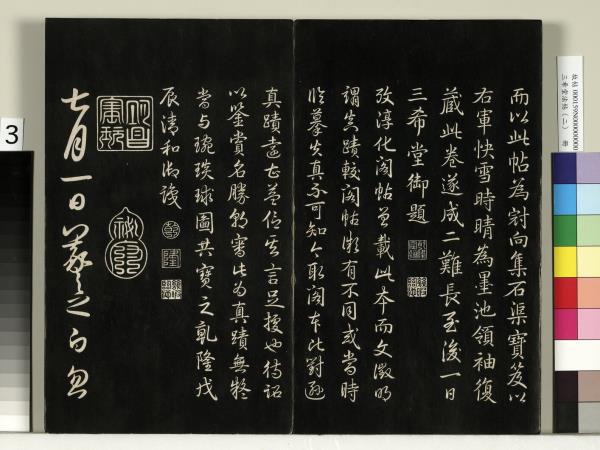 而以此帖為冠向集石渠寶笈以
右軍快雪時晴為墨池領袖復
藏此卷遂成二難長至後一日
三希堂御題
攷淳化閣帖曾載此本而文徵明
謂真蹟較閣帖微有不同或當時
臨摹失真不可知今取閣本比對
真蹟益信其言足據也待詔
以鑒賞名勝朝審此為真蹟無疑
當與琬琰球圖共寶之乾隆戊
辰清和御識
乾
隆
七月一日羲之白忽
三希堂法帖(二) 冊
3